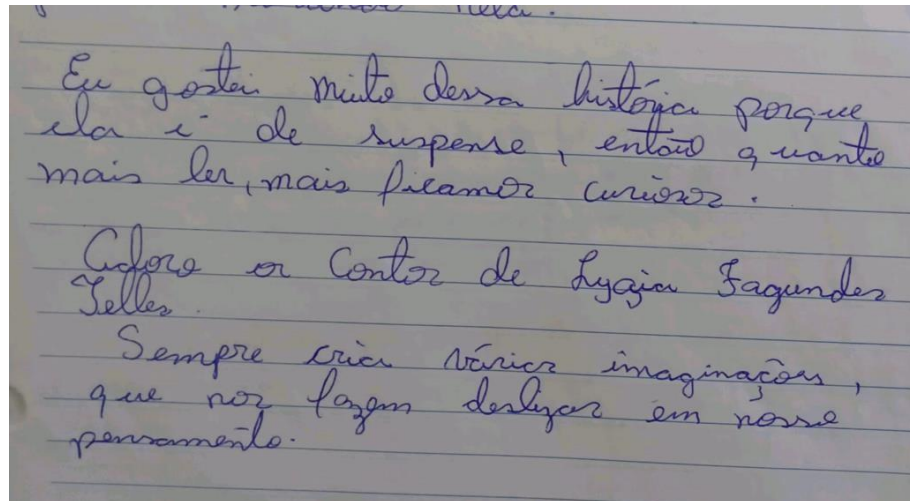 nela.
Eu gostei muito dessa história porque
ela é de suspense, então quanto
mais ler, mais ficamos curiosos.
Adoro os Contos de Lygia Fagundes
Telles.
Sempre cria várias imaginações,
que nos fazem deslizar em nosso
pensamento.